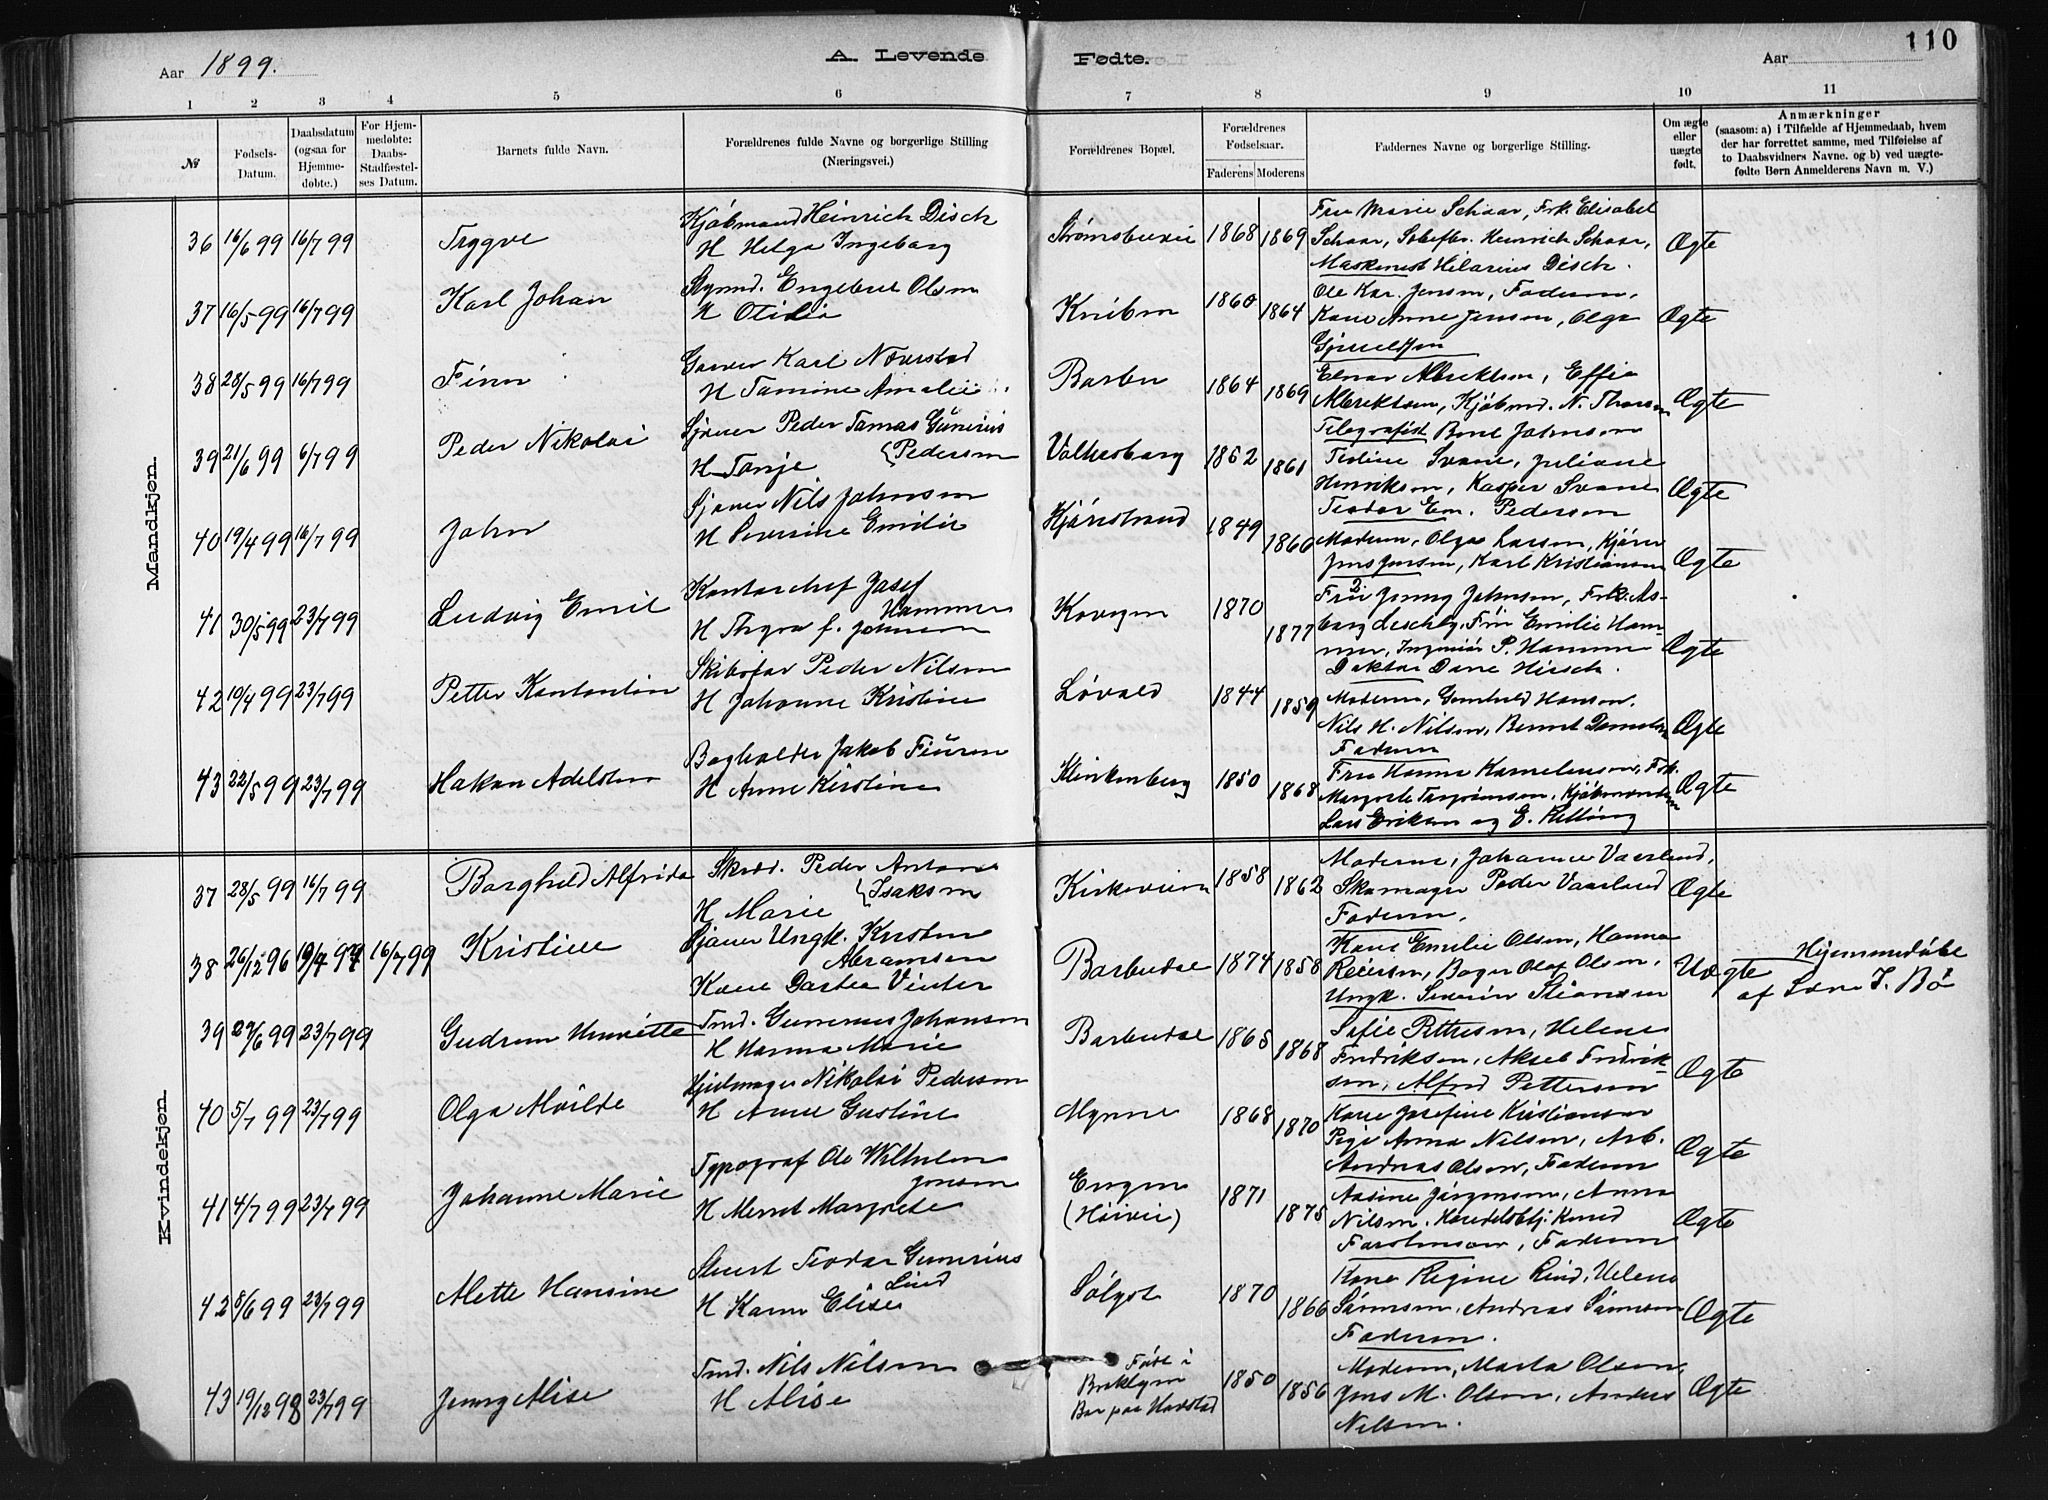 Aar 1899.
A. Levende
Fødte.
Aar
110
1 2 3 4 5 6 7 8 9 10 11
№
Fødsels-Datum.
Daabsdatum (ogsaa for Hjemmedøbte.)
For Hjemmedøbte: Daabs-Stadfæstelses Datum.
Barnets fulde Navn.
Forældrenes fulde Navne og borgerlige Stilling (Næringsvei.)
Forældrenes Bopæl.
Forældrenes Fødselsaar.
Faderens Moderens
Faddernes Navne og borgerlige Stilling.
Om ægte eller uægte født.
Anmærkninger
(saasom: a) i Tilfælde af Hjemmedaab, hvem
der har forrettet samme, med Tilføielse af
to Daabsvidners Navne. og b) ved uægte-
fødte Børn Anmelderens Navn m. V.)
Mandkjøn.
36 16/6 99 16/7 99 Trygve
Kjøbmand Heinrich Disch
H Helga Ingeborg
1868 1869
Fru Marie Schaar, Frk. Elisabet
Schaar, Heinrich Schaar,
Maskinist Hilarius Disch.
Ægte
37 16/5 99 16/7 99 Karl Johan
Engebret Olsen
H Otilia
1860 1864
Ole Kar. Jensen, Faderen,
Kone Anne Jensen, Olga
Ægte
38 28/5 99 16/7 99 Finn
Karl Næverstad
H Tomine Amalie
Barbu 1864 1869
Einar Albrektson, Effie
Albrektson, Kjøbmd. N. Thorsen
Telegrafist Bent Johnson
Ægte
39 21/6 99 6/7 99 Peder Nikolai
Peder Tomas Gunerius
Pedersen
H Tonje
1862 1861
Svane, Juliane
Henriksen, Kasper Svane
Teodor Em. Pederson
Ægte
40 19/4 99 16/7 99 John
Nils Johnson
H Severine Emilie
1849 1866
Moderen, Olga Larsen,
Jens Jensen, Karl Kristiansen
Ægte
41 30/5 99 23/7 99 Ludvig Emil
Kontorchef Josef
Hammer
H Thyra f. Johnson
1870 1877
Jenny Johnson, Frk. As-
borg Leschly, Frü Emilie Ham-
mer, Ingeniør P. Hammer
Doktor Hirsch.
Ægte
42 10/4 99 23/7 99 Petter Konstantin
Peder Nilsen
H Johanne Kristine
Løvold 1844 1859
Moderen, Gunhild Hanson.
Nils H. Nilson,
Faderen
Ægte
43 22/5 99 23/7 99 Hakon Adelsten
Bogholder Jakob
H Anne Kirstine
Klinkenberg 1850 1868
Fru Hanna Kornelinsen, Frk.
Margrete
Lars Eriksen og E. Kitting
Ægte
Kvindekjøn.
37 28/5 99 16/7 99 Borghild Alfrida
Skræd. Peder Antone
Isaksen
H Marie
Kirkeveien 1858 1862
Moderen, Johanne Vaarlund,
Skomager Peder Vaarlund
Faderen.
Ægte
38 26/12 96 19/4 97 16/7 99 Kristine
Ungk. Kristen
Abramsen
Kone Dortea Vinter
Barbudal 1874 1858
Kone Emilie Olsen, Hanna
Reiersen, Bager Olaf Olsen,
Ungk. Severin
Uægte
Hjemmedøbt
af Lærer I. Bø
39 27/6 99 23/7 99 Gudrun Henriette
Tmd. Gunerius Johansen
H Hanna Marie
Barbudal 1865 1868
Sofie Pettersen, Helene
Fredriksen, Aksel Fredrik-
sen, Alfred Petterson
Ægte
40 5/7 99 23/7 99 Olga Alvilde
Hjulmager Nikolai Pedersen
H Anne Gustine
Myrene 1868 1870
Kone Josefine Kristiansen
Pige Anna Nilsen, Arb.
Andreas Olsen, Faderen
Ægte
41 4/7 99 23/7 99 Johanne Marie
Typograf Ole Wilhelm
Jensen
H Merret Margrete
Engen
(Høivei)
1871 1875
Aasine Jørgensen, Anna
Nilsen, Handelsbtj. Knud
Torstensen, Faderen
Ægte
42 8/6 99 23/7 99 Alette Hansine
Stuert Teodor Gunerius
Lind
H Karen Elise
1870 1866
Kone Regine Lind, Helene
Sørensen, Andreas Sørensen
Faderen.
Ægte
43 19/12 98 23/7 99 Jenny Alise
Tmd. Nils Nilsen
H Alise
Født i
Broklyn
Bor paa Havstad
1850 1856
Moderen, Marta Olsen,
Jens M. Olsen, Anders
Nilsen.
Ægte